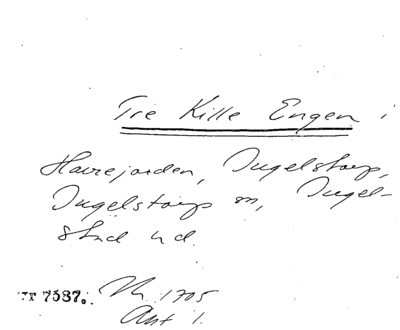 Tre Kille Engen i
Havrejorden, Ingelstorp,
Ingelstorps sn, Ingel-
stad hd.
nr 7587. Nh 1705
Akt 1.